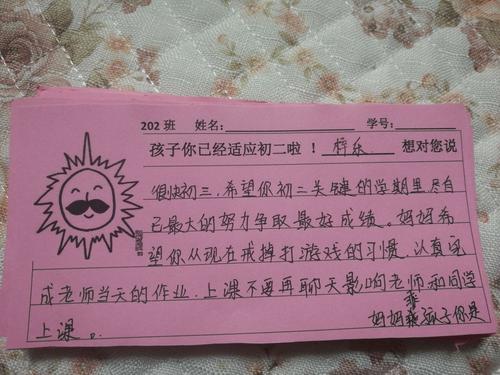 202 班 姓名： 学号：
孩子你已经适应初二啦！ 梓乐 想对您说
很快初三，希望你初二关键的学期里尽自
己最大的努力争取最好成绩。妈妈希
望你从现在戒掉打游戏的习惯，认真完
成老师当天的作业，上课不要再聊天影响老师和同学
上课。
乖
妈妈 孩子你是